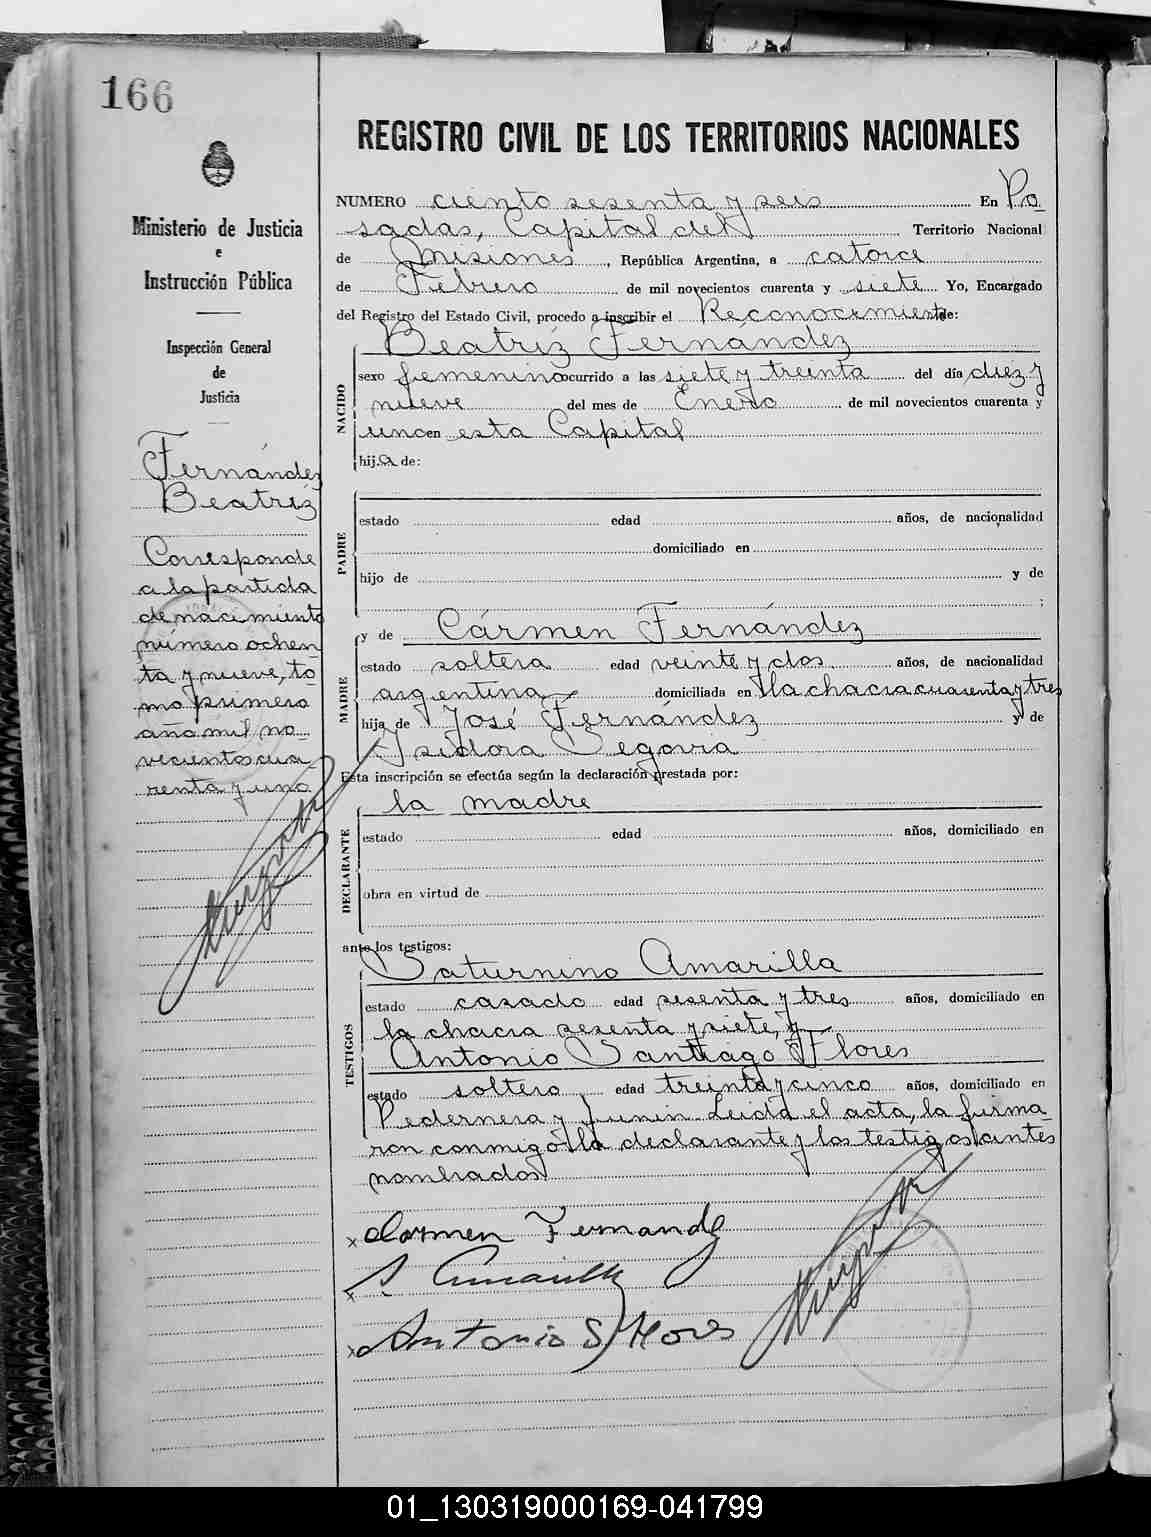 166
Ministerio de Justicia
e
Instrucción Pública
Inspección General
de
Justicia
Fernández
Beatríz
Corresponde
a la partida
de nacimiento
número ochen-
ta y nueve, to-
mo primero
año mil no-
vecientos cua-
renta y uno
REGISTRO CIVIL DE LOS TERRITORIOS NACIONALES
NUMERO ciento sesenta y seis En Po-
sadas, Capital del Territorio Nacional
de Misiones, República Argentina, a catorce
de Febrero de mil novecientos cuarenta y siete Yo, Encargado
del Registro del Estado Civil, procedo a inscribir el Reconocimiento de:
NACIDO
Beatríz Fernández
sexo femenino ocurrido a las siete y treinta del día diez y
nueve del mes de Enero de mil novecientos cuarenta y
uno en esta Capital
hija de:
PADRE
estado edad años, de nacionalidad
domiciliado en
hijo de y de
;
MADRE
y de Cármen Fernández
estado soltera edad veinte y dos años, de nacionalidad
argentina domiciliada en la chacra cuarenta y tres
hija de José Fernández y de
Isidora Segovia
Esta inscripción se efectúa según la declaración prestada por:
DECLARANTE
la madre
estado edad años, domiciliado en
obra en virtud de
ante los testigos:
TESTIGOS
Saturnino Amarilla
estado casado edad sesenta y tres años, domiciliado en
la chacra sesenta y siete, y
Antonio Santiago Flores
estado soltero edad treinta y cinco años, domiciliado en
Pedernera y Junin Leida el acta, la firma-
ron conmigo la declarante y los testigos antes
nombrados
x Carmen Fernandez
x S. Amarilla
x Antonio S. Flores
01_130319000169-041799